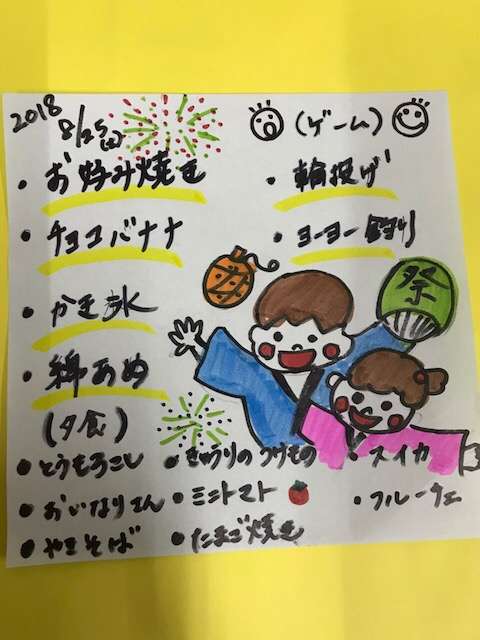 2018
8/25(土)
(ゲーム)
・お好み焼き
・チョコバナナ
・かき氷
・綿あめ
・輪投げ
・ヨーヨー釣り
祭
(夕食)
・とうもろこし
・おいなりさん
・やきそば
・きゅうりのつけもの
・ミニトマト
・たまご焼き
・スイカ
・フルーチェ